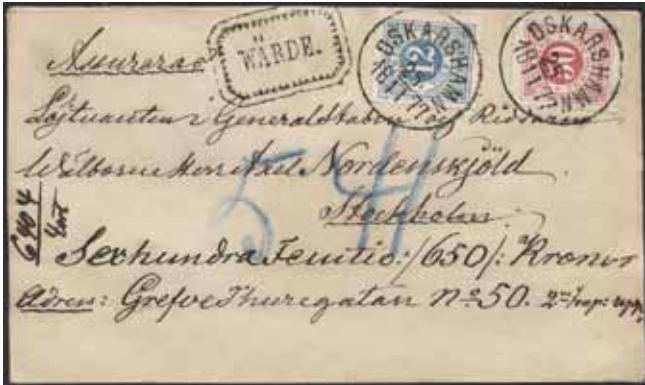 Assureras
WÄRDE.
12
OSKARSHAMN
18 11 77
50
OSKARSHAMN
18 11 77
Löjtnanten i Generalstaben och Riddaren
Wälborne Herr Axel Nordenskjöld
Stockholm.
54
Sexhundra Femtio:/650/: Kronor
Adress: Grefve Thuregatan No 50. 2